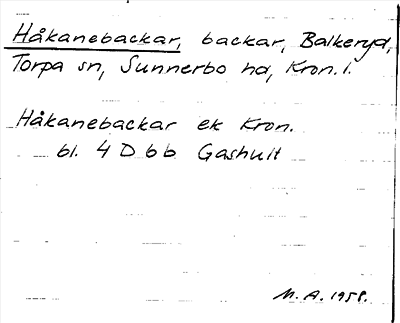 Håkanebackar, backar, Balkeryd,
Torpa sn, Sunnerbo hd, Kron. l.
Håkanebackar ek Kron.
bl. 4 D b b Gashult
M. A. 1958.